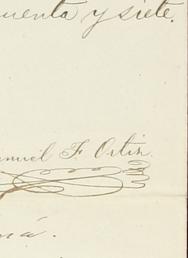 uenta y siete.
nuel F. Ortiz
má.